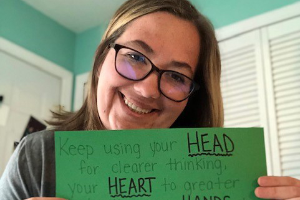 Keep using your HEAD
for clearer thinking,
your HEART to greater
HANDS